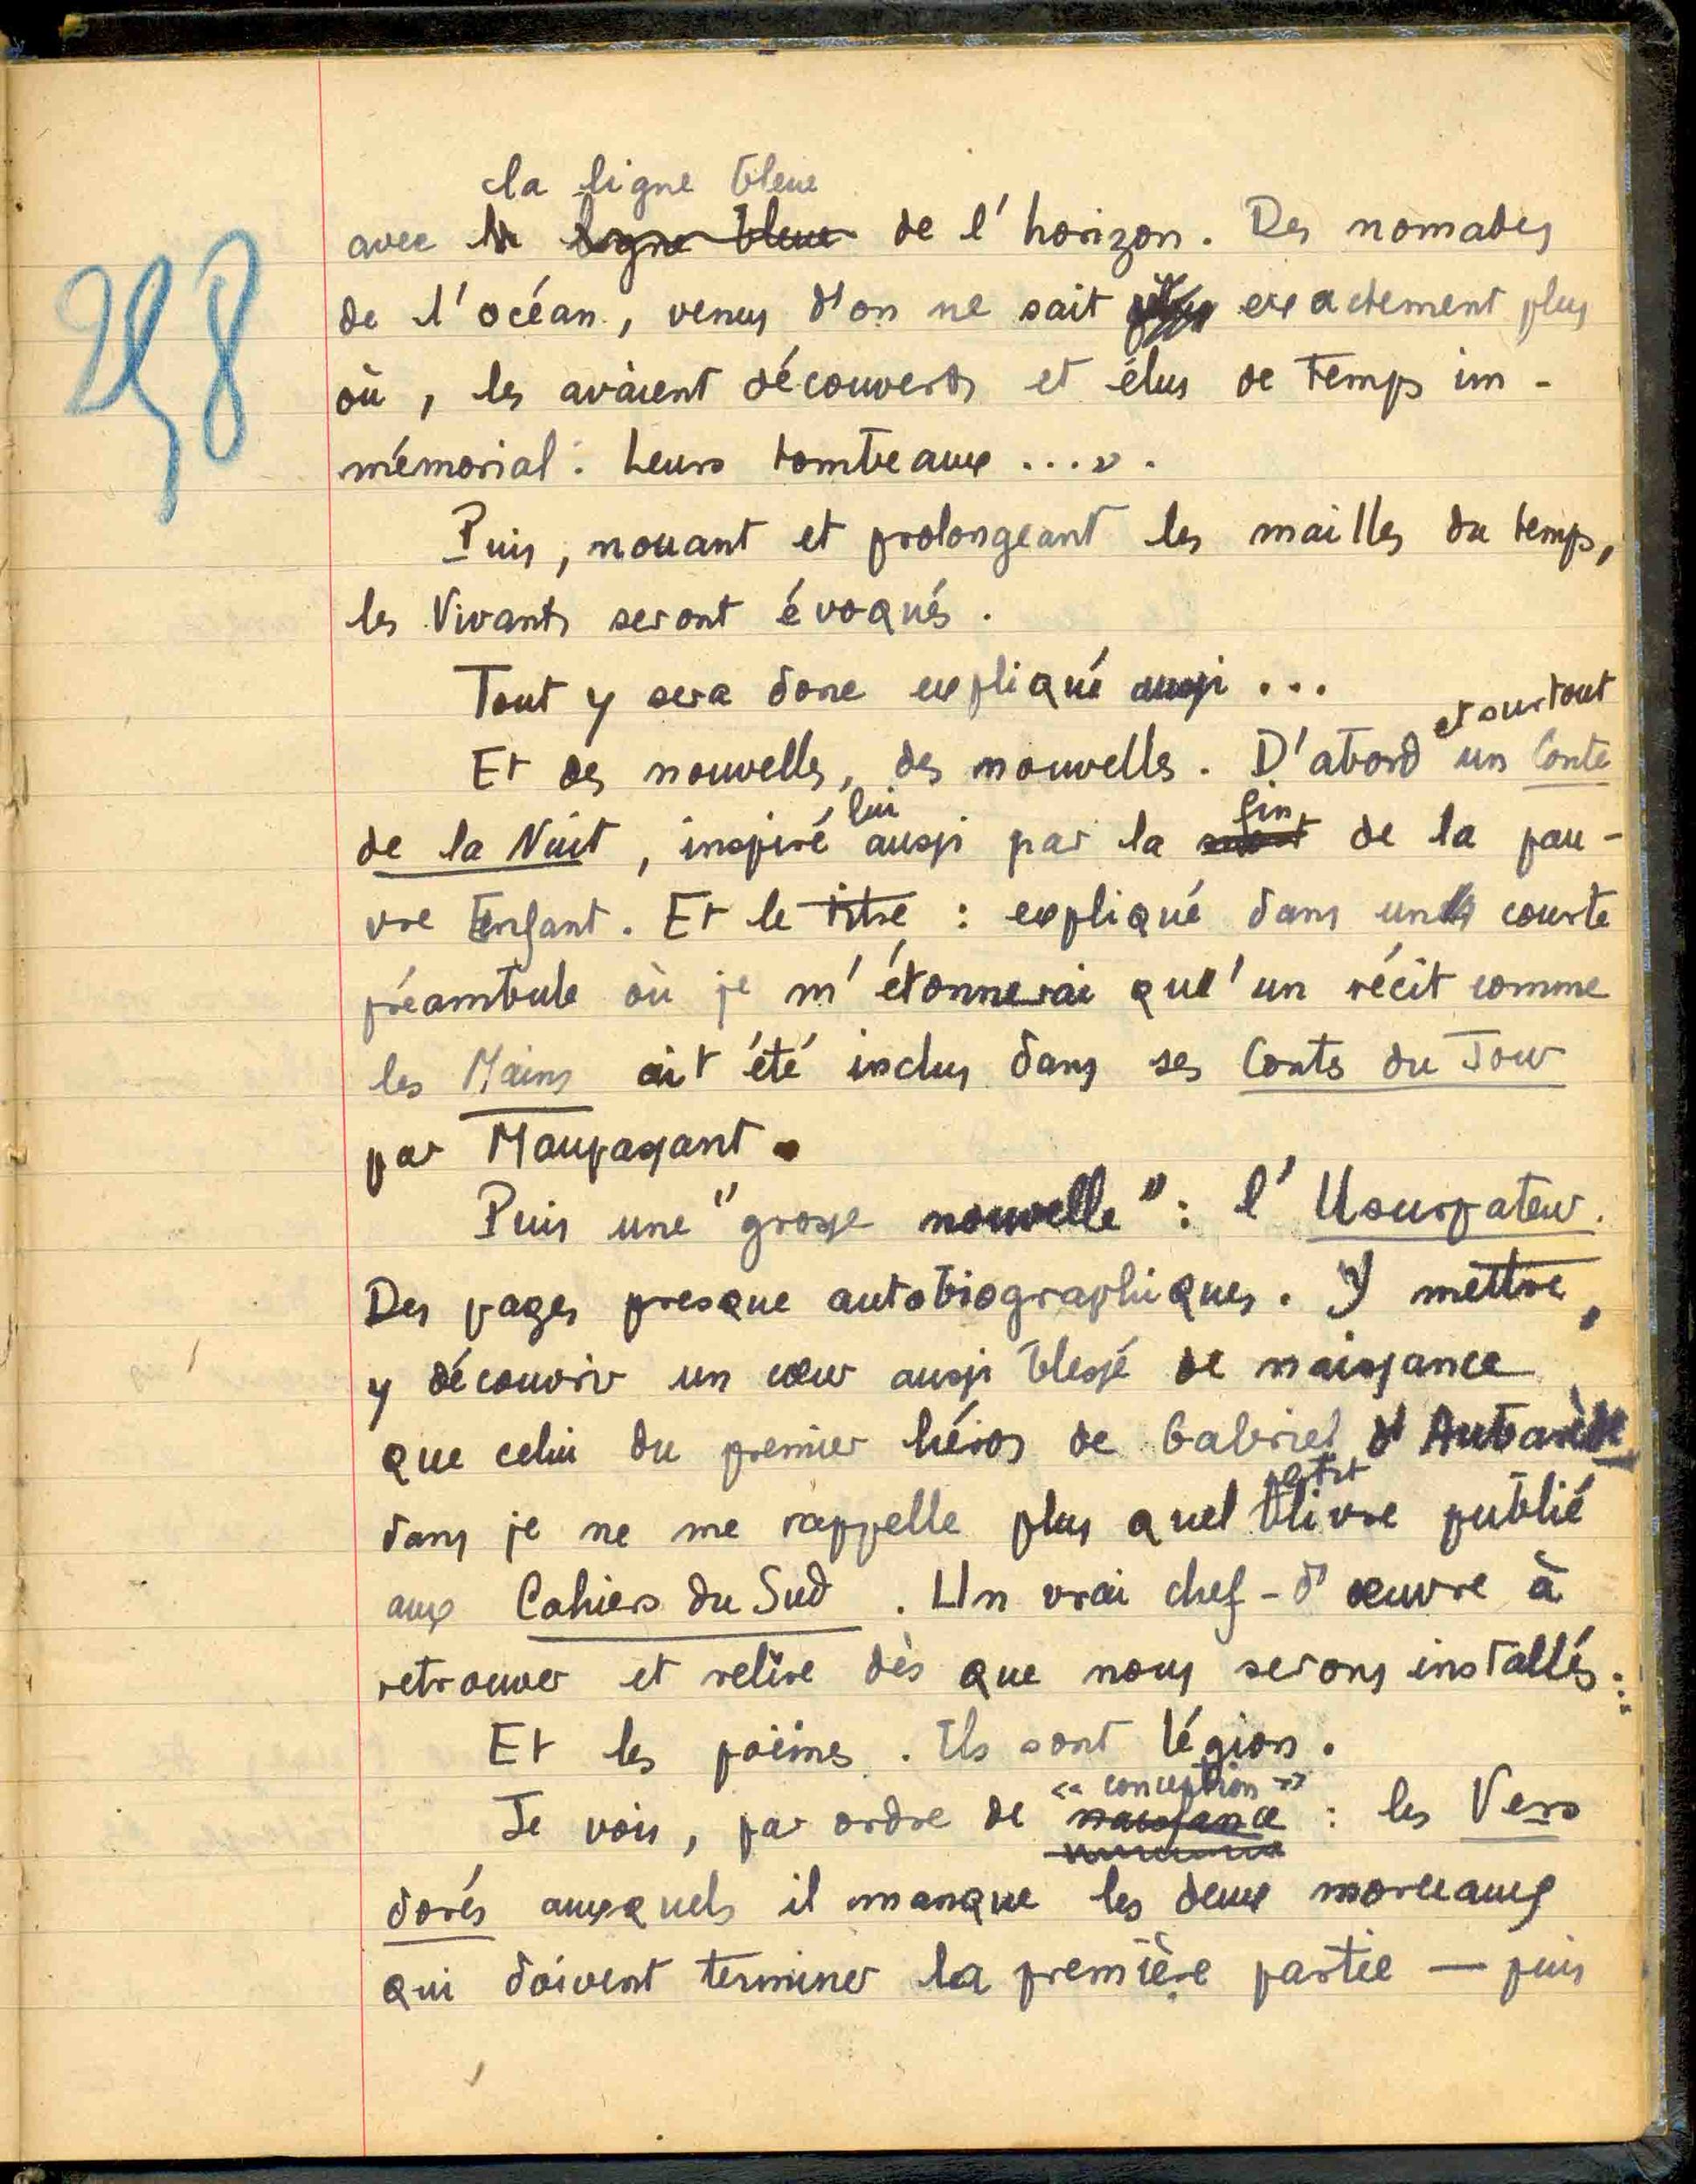 258
la ligne bleue
avec la ligne bleue de l'horizon. Des nomades
de l'océan, venus d'on ne sait plus exactement plus
où, les avaient découverts et élus de temps im-
mémorial : leurs tombeaux ...».
Puis, nouant et prolongeant les mailles du temps,
les Vivants seront évoqués.
Tout y sera donc expliqué aussi ...
et surtout
Et des nouvelles, des nouvelles. D'abord un Conte
lui fin
de la Nuit, inspiré aussi par la de la pau-
vre Enfant. Et le titre : expliqué dans un courte
préambule où je m'étonnerai qu'un récit comme
les Mains ait été inclus dans ses Contes du Jour
par Maupassant.
Puis une "grosse nouvelle" : l'Usurpateur.
Des pages presque autobiographiques. Y mettre,
y découvrir un cœur aussi blessé de naissance
que celui du premier héros de Gabriel d'Aubarède
petit
dans je ne me rappelle plus quel livre publié
aux Cahiers du Sud. Un vrai chef-d'œuvre à
retrouver et relire dès que nous serons installés...
Et les poèmes. Ils sont légion.
« conception »
Je vois, par ordre de naissance : les Vers
dorés auxquels il manque les deux morceaux
qui doivent terminer la première partie — puis